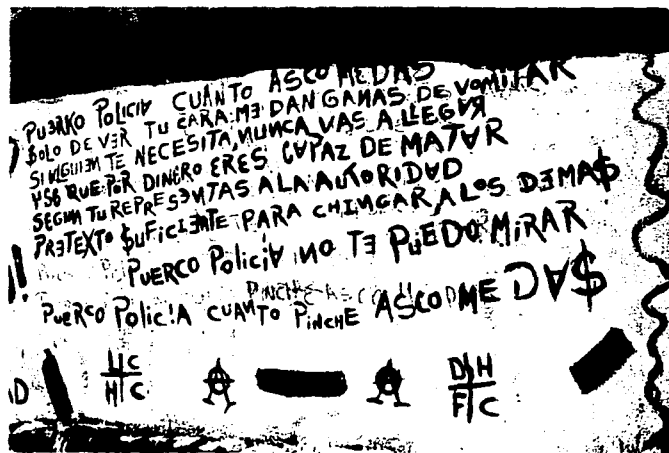 PUERKO POLICIA CUANTO ASCO ME DAS
SOLO DE VER TU CARA ME DAN GANAS DE VOMITAR
SI ALGUIEN TE NECESITA, NUNCA VAS A LLEGAR
Y SE QUE POR DINERO ERES CAPAZ DE MATAR
SEGUN TU REPRESENTAS A LA AUTORIDAD
PRETEXTO $UFICIENTE PARA CHINGAR A LOS DEMA$
PUERCO POLICIA NO TE PUEDO MIRAR
PUERCO POLICIA CUANTO PINCHE ASCO ME DA$
D LC HC A A DH FC